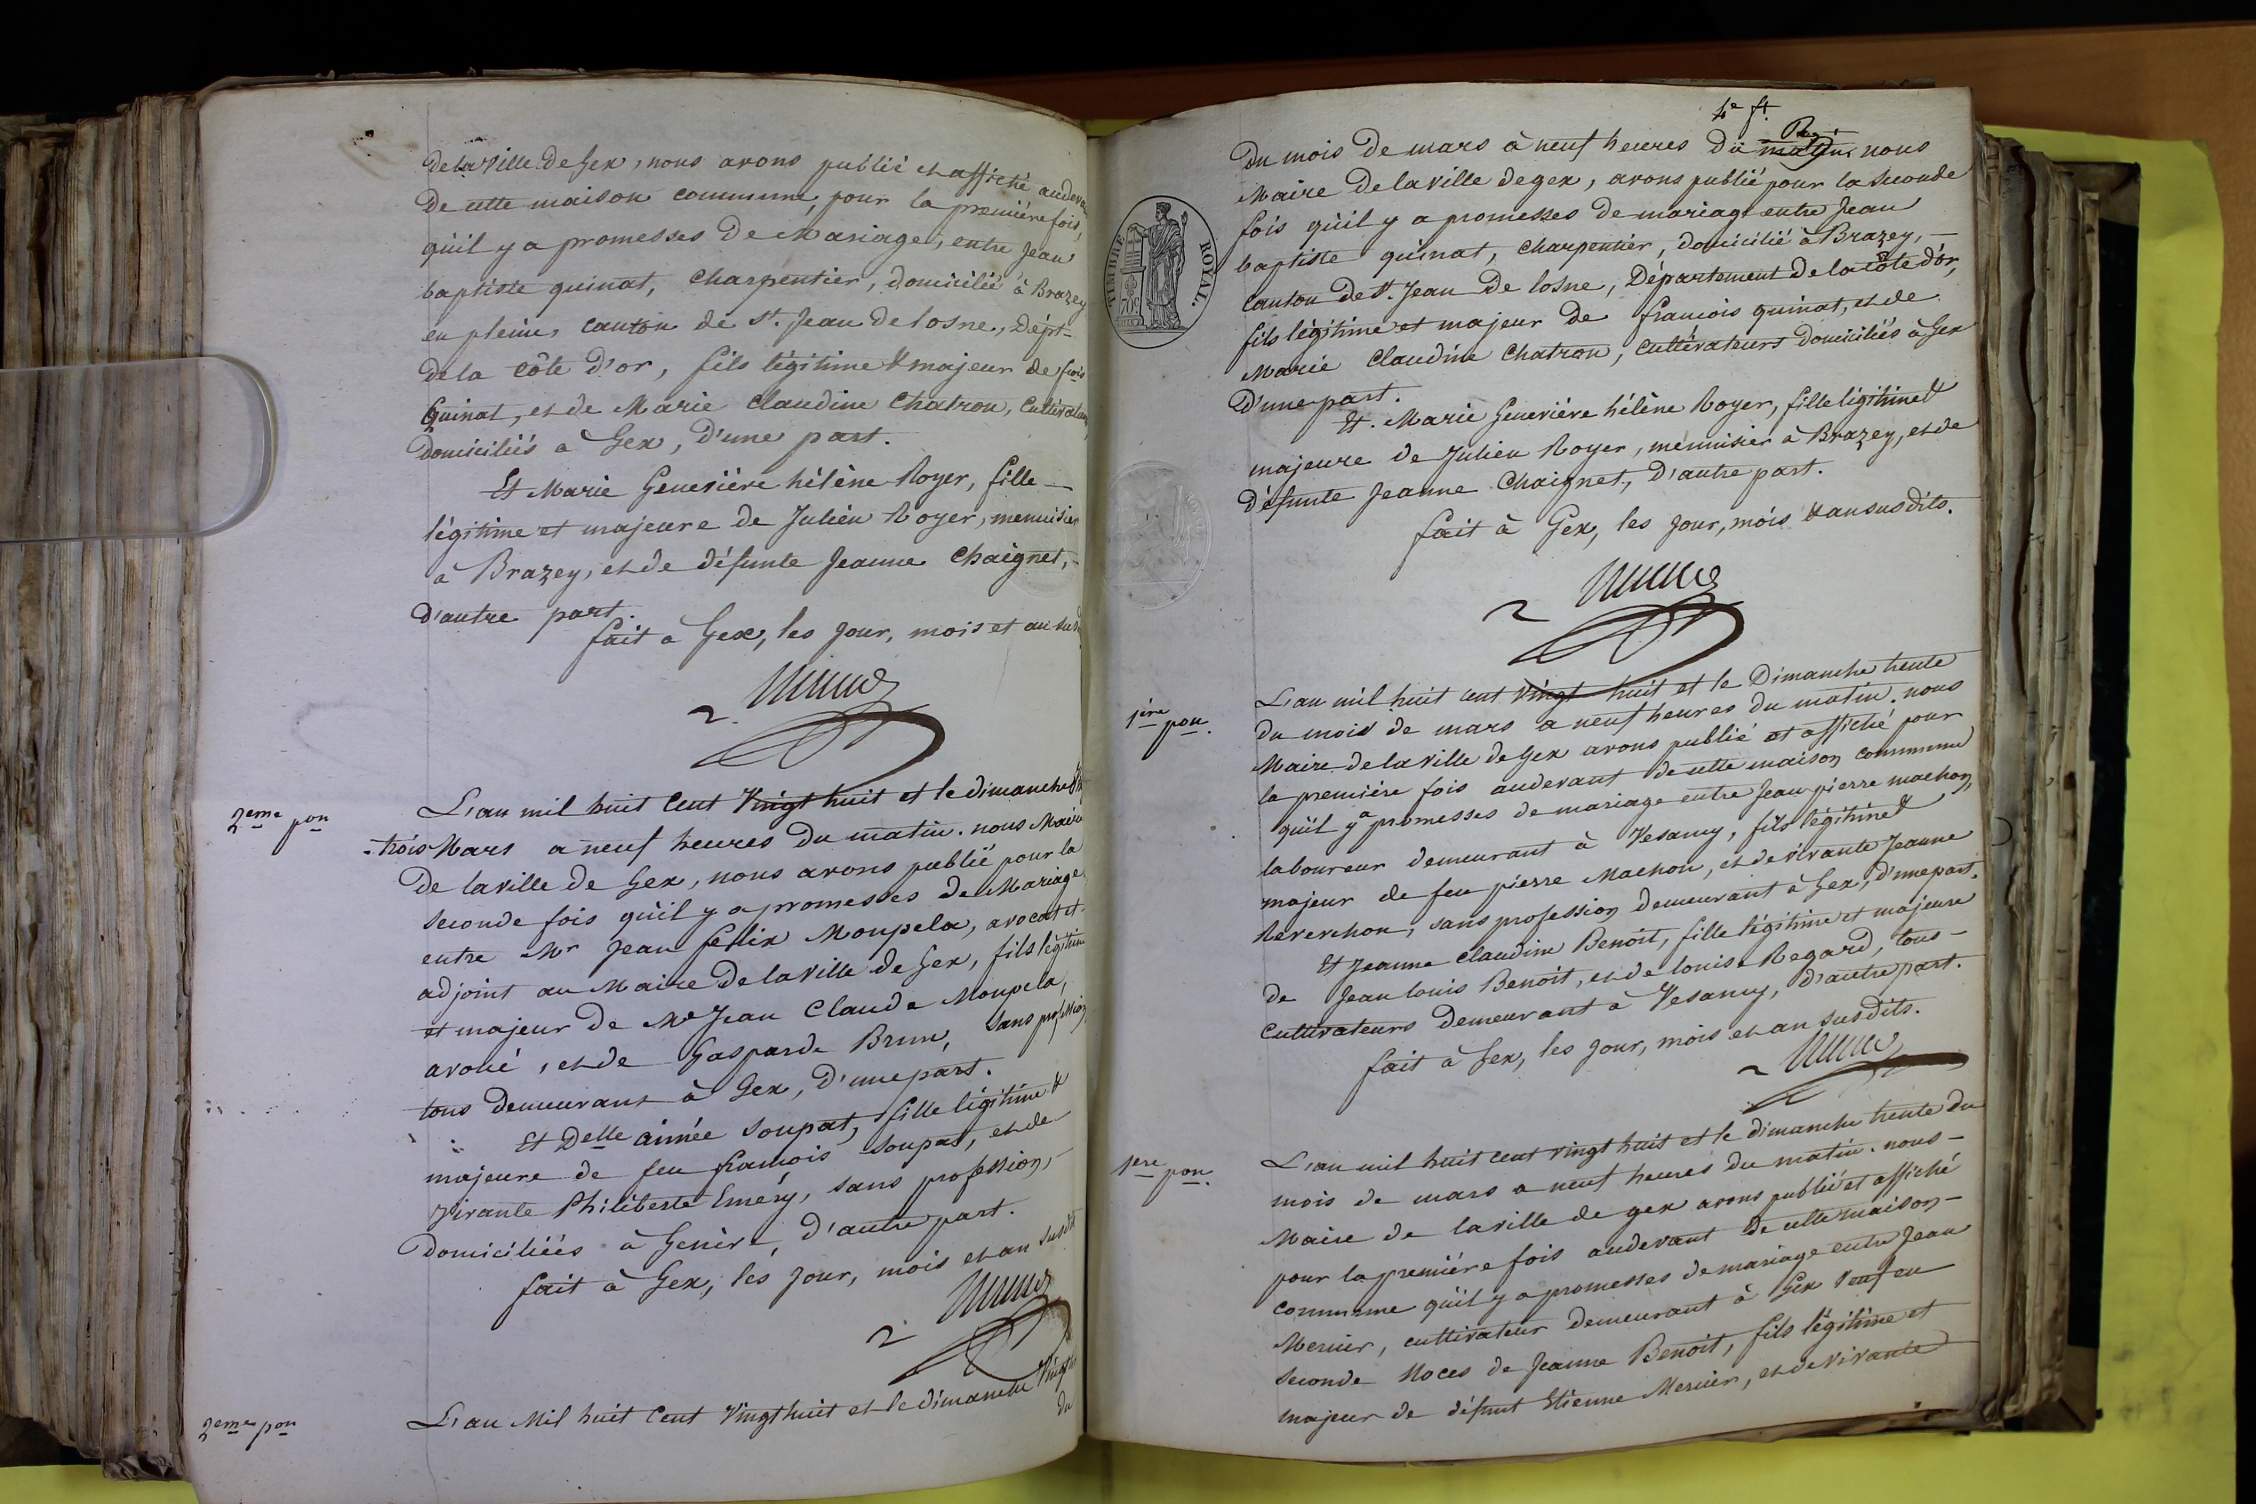 de la ville de Gex, nous avons publié et affiché audevant
de cette maison commune, pour la première fois,
qu'il y a promesses de Mariage, entre Jean
baptiste quinat, charpentier, domicilié à Brazey
en pleine, canton de St. Jean de losne, Dépt-
de la côte d'or, fils légitime & majeur de frois
Quinat, et de Marie Claudine Chatron, Cultivateurs,
domiciliés à Gex, d'une part.
Et Marie Geneviève hélène Royer, fille
légitime et majeure de Julien Royer, menuisier
à Brazey, et de défunte Jeanne Chaignet,
d'autre part.
fait à Gex, les jour, mois et an
2eme pon
L'an mil huit Cent Vingt huit et le dimanche
-trois Mars a neuf heures du matin. nous Maire
de la ville de Gex, nous avons publié pour la
seconde fois qu'il y a promesses de Mariage
entre Mr Jean felix Moupela, avocat et
adjoint au Maire de la ville de Gex, fils légitime
et majeur de Me Jean Claude Moupela,
avoué, et de Gasparde Brun, sans profession
tous demeurant à Gex, d'une part.
Et Delle aimée Soupat, fille légitime &
majeure de feu francois Soupat, et de
vivante Philiberte Eméry, sans profession,
domiciliées à Genève, d'autre part.
fait à Gex, les jour, mois et an susdit
2eme pon
L'an Mil huit Cent Vingt huit et le dimanche Vingt
du
TIMBRE ROYAL.
70c
du mois de mars à neuf heures du matin. nous
Maire de la ville de gex, avons publié pour la seconde
fois qu'il y a promesses de mariage entre Jean
baptiste quinat, charpentier, domicilié à Brazey,
canton de St. Jean de losne, Département de la côte d'or,
fils légitime et majeur de francois quinat, et de
Marie Claudine Chatron, cultivateurs domiciliés à Gex
d'une part.
Et. Marie Geneviève hélène Royer, fille légitime &
majeure de Julien Royer, menuisier à Brazey, et de
défunte Jeanne Chaignet, d'autre part.
fait à Gex, les jour, mois & an susdits.
1ère pon.
L'an mil huit cent vingt huit et le Dimanche trente
du mois de mars a neuf heures du matin. nous
Maire de la ville de Gex avons publié et affiché pour
la première fois audevant de cette maison commune
qu'il y a promesses de mariage entre Jean pierre machon,
laboureur demeurant à Vesancy, fils légitime &
majeur de feu pierre Machon, et de vivante Jeanne
Reverchon, sans profession demeurant à Gex, d'une part.
Et Jeanne Claudine Benoit, fille légitime et majeure
de Jean louis Benoit, et de louise Regard, tous
cultivateurs demeurant à Vesancy, d'autre part.
fait à Gex, les jour, mois et an susdits.
1ere pon.
L'an mil huit cent vingt huit et le dimanche trente du
mois de mars a neuf heures du matin. nous
Maire de la ville de gex avons publié et affiché
pour la première fois audevant de cette maison
commune qu'il y a promesses de mariage entre Jean
Mercier, cultivateur demeurant à Gex veuf en
seconde Noces de Jeanne Benoit, fils légitime et
majeur de défunt Etienne Mercier, et de vivante